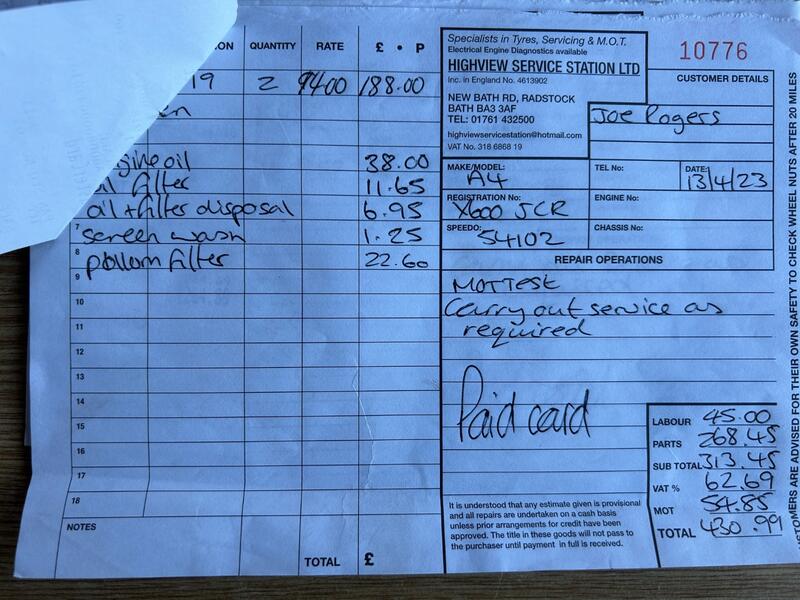 QUANTITY RATE £ • P
19 2 94.00 188.00
engine oil 38.00
oil filter 11.65
oil + filter disposal 6.95
7 screen wash 1.25
8 pollum filter 22.60
9
10
11
12
13
14
15
16
17
18
NOTES
TOTAL £
Specialists in Tyres, Servicing & M.O.T.
Electrical Engine Diagnostics available
HIGHVIEW SERVICE STATION LTD
Inc. in England No. 4613902
NEW BATH RD, RADSTOCK
BATH BA3 3AF
TEL: 01761 432500
highviewservicestation@hotmail.com
VAT No. 318 6868 19
10776
CUSTOMER DETAILS
Joe Rogers
MAKE/MODEL: A4
TEL No:
DATE: 13/4/23
REGISTRATION No: X600 JCR
ENGINE No:
SPEEDO: 54102
CHASSIS No:
REPAIR OPERATIONS
MOT TEST
Carry out service as
required
Paid card
It is understood that any estimate given is provisional
and all repairs are undertaken on a cash basis
unless prior arrangements for credit have been
approved. The title in these goods will not pass to
the purchaser until payment in full is received.
LABOUR 45.00
PARTS 268.45
SUB TOTAL 313.45
VAT % 62.69
MOT 54.85
TOTAL 430.99
CUSTOMERS ARE ADVISED FOR THEIR OWN SAFETY TO CHECK WHEEL NUTS AFTER 20 MILES